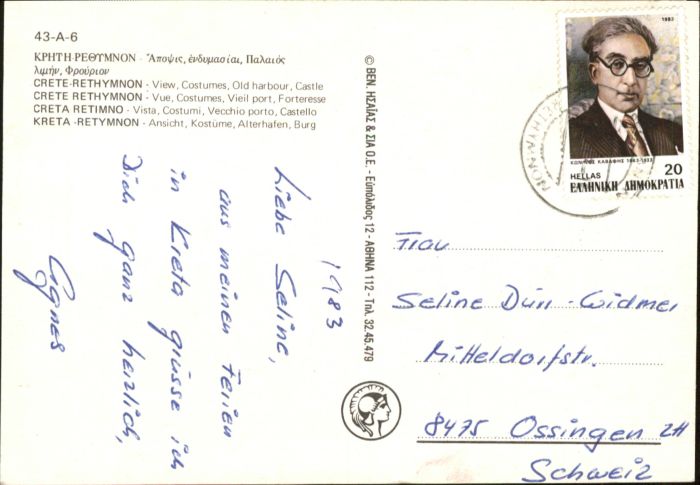 43-A-6
ΚΡΗΤΗ-ΡΕΘΥΜΝΟΝ - Ἄποψις, ἐνδυμασίαι, Παλαιός
λιμήν, Φρούριον
CRETE-RETHYMNON - View, Costumes, Old harbour, Castle
CRETE RETHYMNON - Vue, Costumes, Vieil port, Forteresse
CRETA RETIMNO - Vista, Costumi, Vecchio porto, Castello
KRETA -RETYMNON - Ansicht, Kostüme, Alterhafen, Burg
1983
Liebe Seline,
aus meinen Ferien
in Kreta grüsse ich
Dich ganz herzlich,
Agnes
© ΒΕΝ. ΗΣΑΪΑΣ & ΣΙΑ Ο.Ε. - Εὐπόλιδος 12 - ΑΘΗΝΑ 112 - Τηλ. 32.45.479
1983
ΚΩΝ/ΝΟΣ ΚΑΒΑΦΗΣ 1863-1933
HELLAS 20
ΕΛΛΗΝΙΚΗ ΔΗΜΟΚΡΑΤΙΑ
Frau
Seline Dürr-Widmer
Mitteldorfstr.
8475 Ossingen ZH
Schweiz